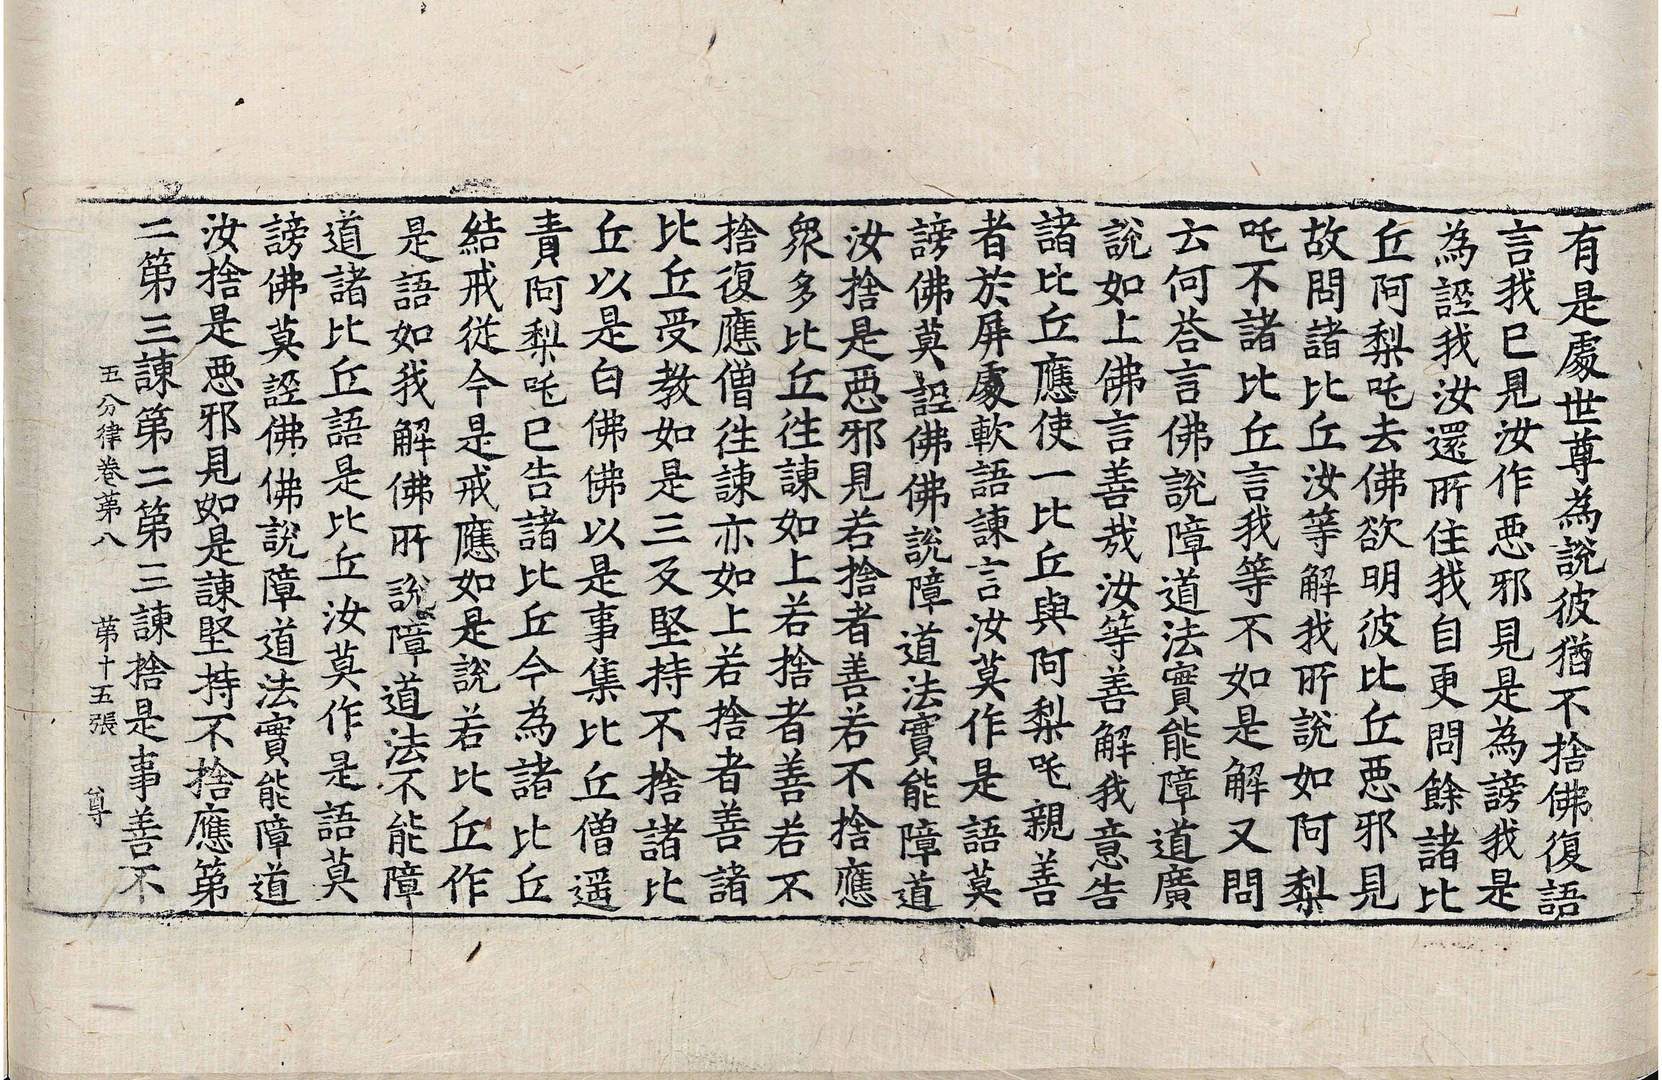 有是處世尊為說彼猶不捨佛復語
言我已見汝作惡邪見是為謗我是
為誣我汝還所住我自更問餘諸比
丘阿梨吒去佛欲明彼比丘惡邪見
故問諸比丘汝等解我所說如阿梨
吒不諸比丘言我等不如是解又問
云何荅言佛說障道法實能障道廣
說如上佛言善哉汝等善解我意告
諸比丘應使一比丘與阿梨吒親善
者於屏處軟語諫言汝莫作是語莫
謗佛莫誣佛佛說障道法實能障道
汝捨是惡邪見若捨者善若不捨應
衆多比丘往諫如上若捨者善若不
捨復應僧往諫亦如上若捨者善諸
比丘受教如是三反堅持不捨諸比
丘以是白佛佛以是事集比丘僧遥
責阿梨吒已告諸比丘今為諸比丘
結戒從今是戒應如是說若比丘作
是語如我解佛所說障道法不能障
道諸比丘語是比丘汝莫作是語莫
謗佛莫誣佛佛說障道法實能障道
汝捨是惡邪見如是諫堅持不捨應第
二第三諫第二第三諫捨是事善不
五分律卷第八 第十五張 尊